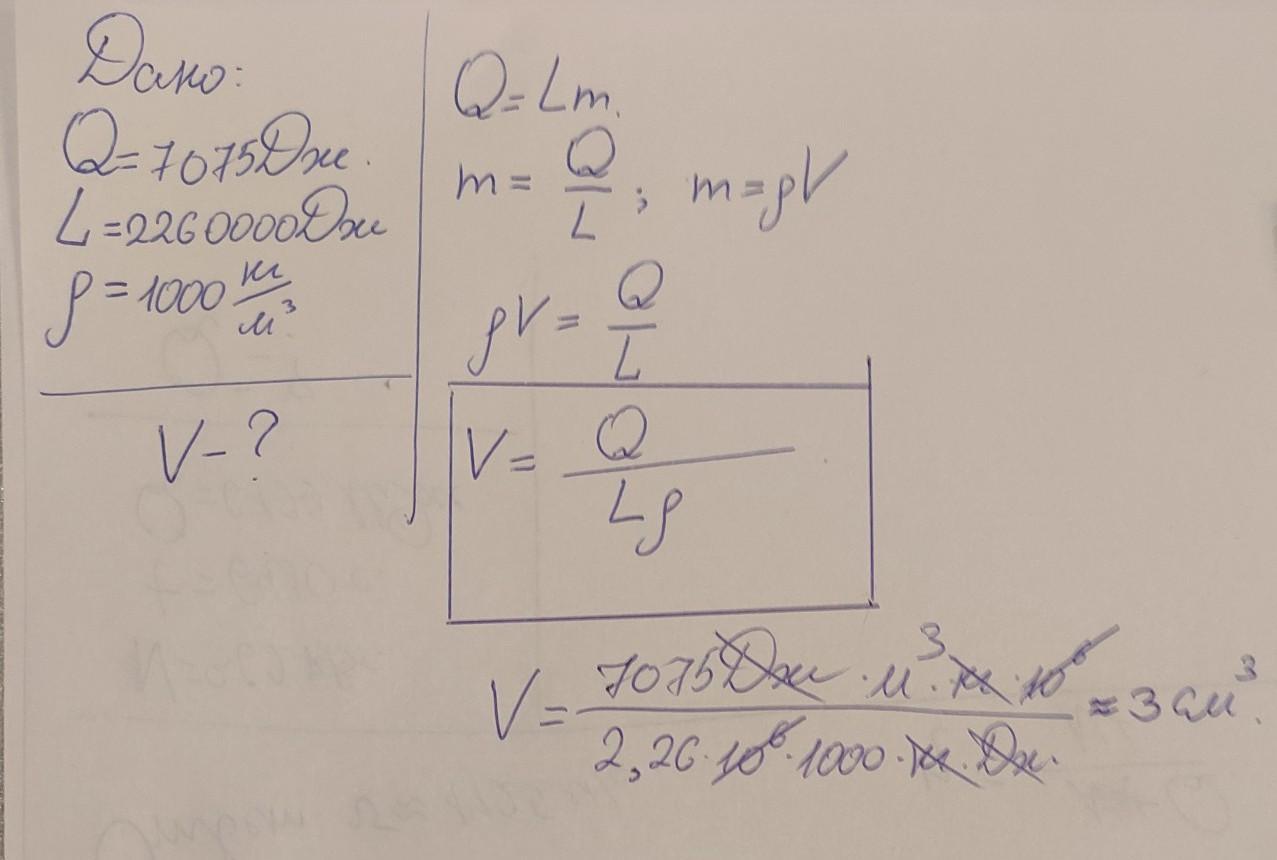 Дано:
Q=7075Дж.
L=2260000Дж
ρ=1000 кг/м³
V-?
Q=Lm.
m= Q/L; m=ρV
ρV= Q/L
V= Q/Lρ
V= 7075Дж·м³·кг·10⁶/2,26·10⁶·1000·кг·Дж. ≈3см³.